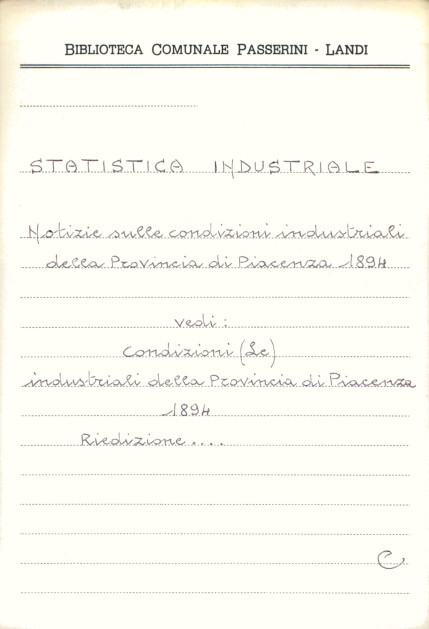 BIBLIOTECA COMUNALE PASSERINI - LANDI
STATISTICA INDUSTRIALE
Notizie sulle condizioni industriali
della Provincia di Piacenza 1894
vedi :
Condizioni (Le)
industriali della Provincia di Piacenza
1894
Riedizione ....
C